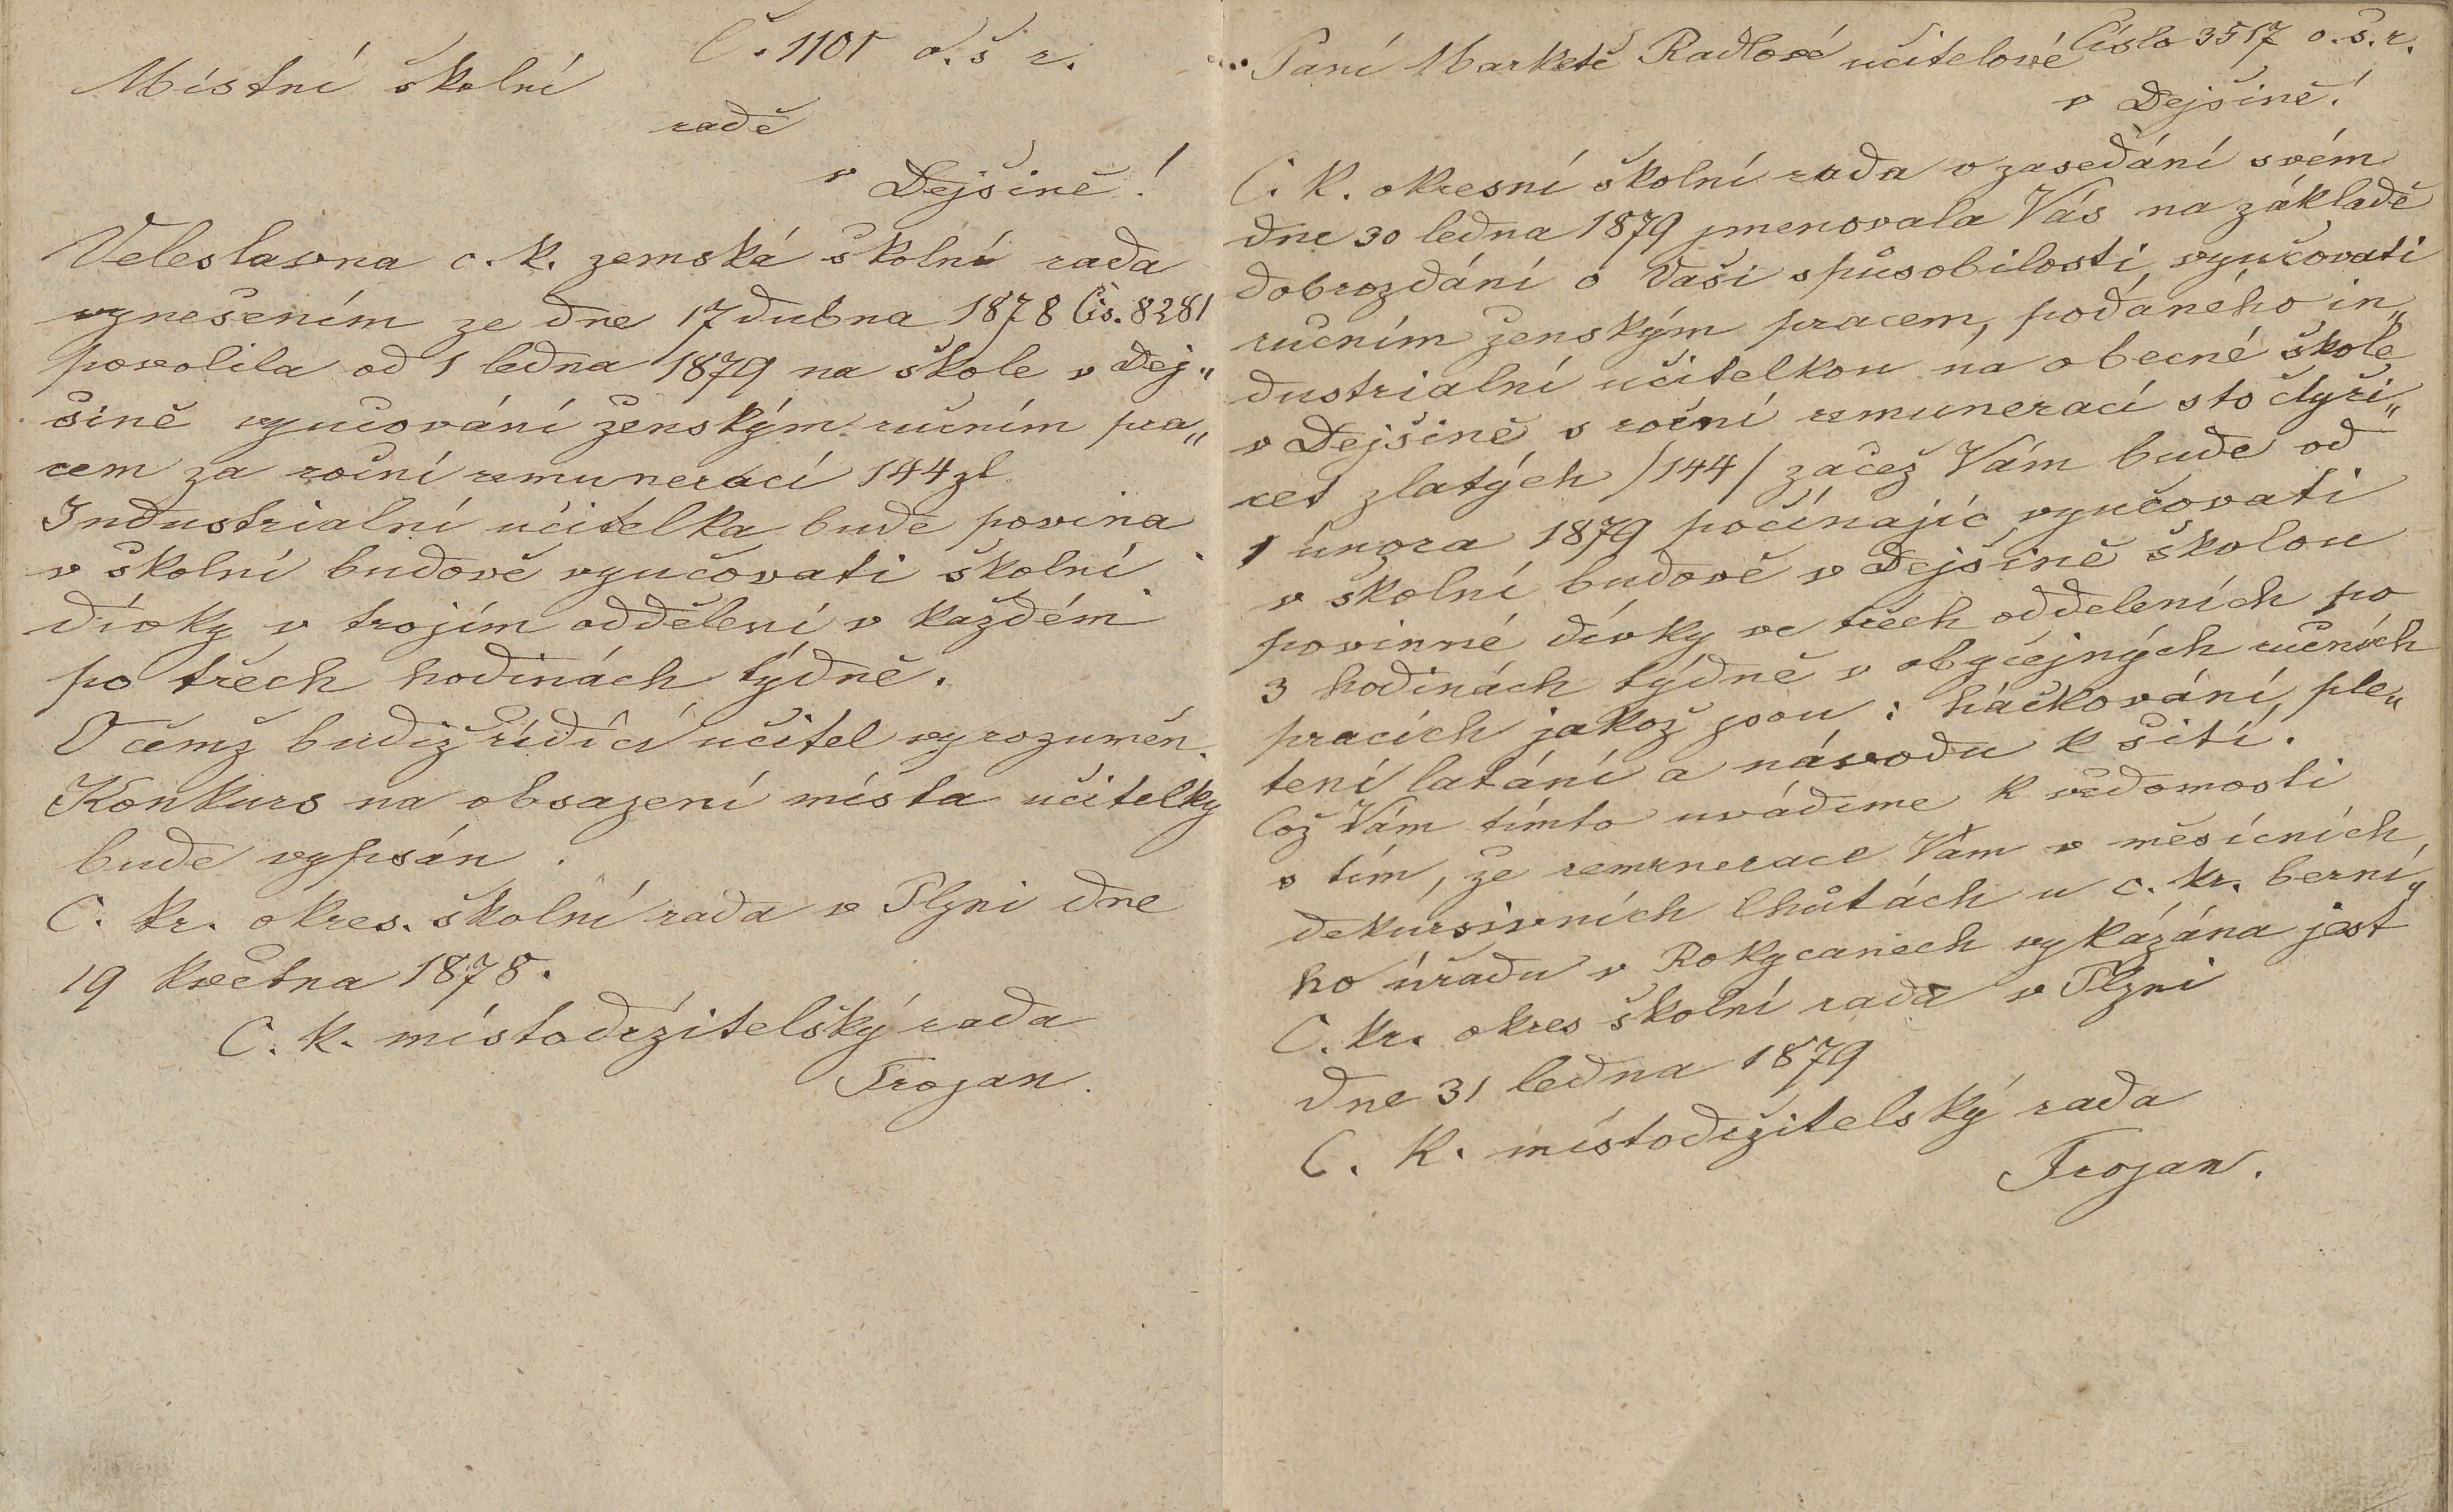 Č. 1101 o. š r.
Místní školní
radě
v Dejšině!
Veleslavna c. k. zemská školní rada
vynešením ze dne 17 dubna 1878 Čís. 8281
povolila od 1 ledna 1879 na škole v Dej„
šině vyučování ženským ručním pra„
cem za roční remuneraci 144 zl
Industrialní učitelka bude povina
v školní budově vyučovati školní
dívky v trojím oddělení v každém
po třech hodinách týdně.
O čemž budiž řídící učitel vyrozuměn.
Konkurs na obsazení místa učitelky
bude vypsán.
C. kr. okres. školní rada v Plzni dne
19 května 1878.
C. k. místodržitelský rada
Trojan.
Číslo 3517 o. š. r.
Paní Marketě Radlové učitelové
v Dejšině!
C. k. okresní školní rada v zasedání svém
dne 30 ledna 1879 jmenovala Vás na základě
dobrozdání o Vaši spůsobilosti vyučovati
ručním ženským pracem, podaného in„
dustrialní učitelkou na obecné škole
v Dejšině s roční remunerací sto čtyři„
cet zlatých /144/ začež Vám bude od
1 února 1879 počínajíc vyučovati
v školní budově v Dejšině školou
povinné dívky ve třech odděleních po
3 hodinách týdně v obyčejných ručních
pracích jakož jsou: háčkování, ple„
tení latání a návodu k šití.
Což Vám tímto uvádíme k vědomosti
s tím, že remunerace Vám v měsícních
dekursivních lhůtách u c. kr. berní„
ho úřadu v Rokycanech vykázána jest
C. kr. okres školní rada v Plzni
dne 31 ledna 1879
C. k. místodržitelský rada
Trojan.